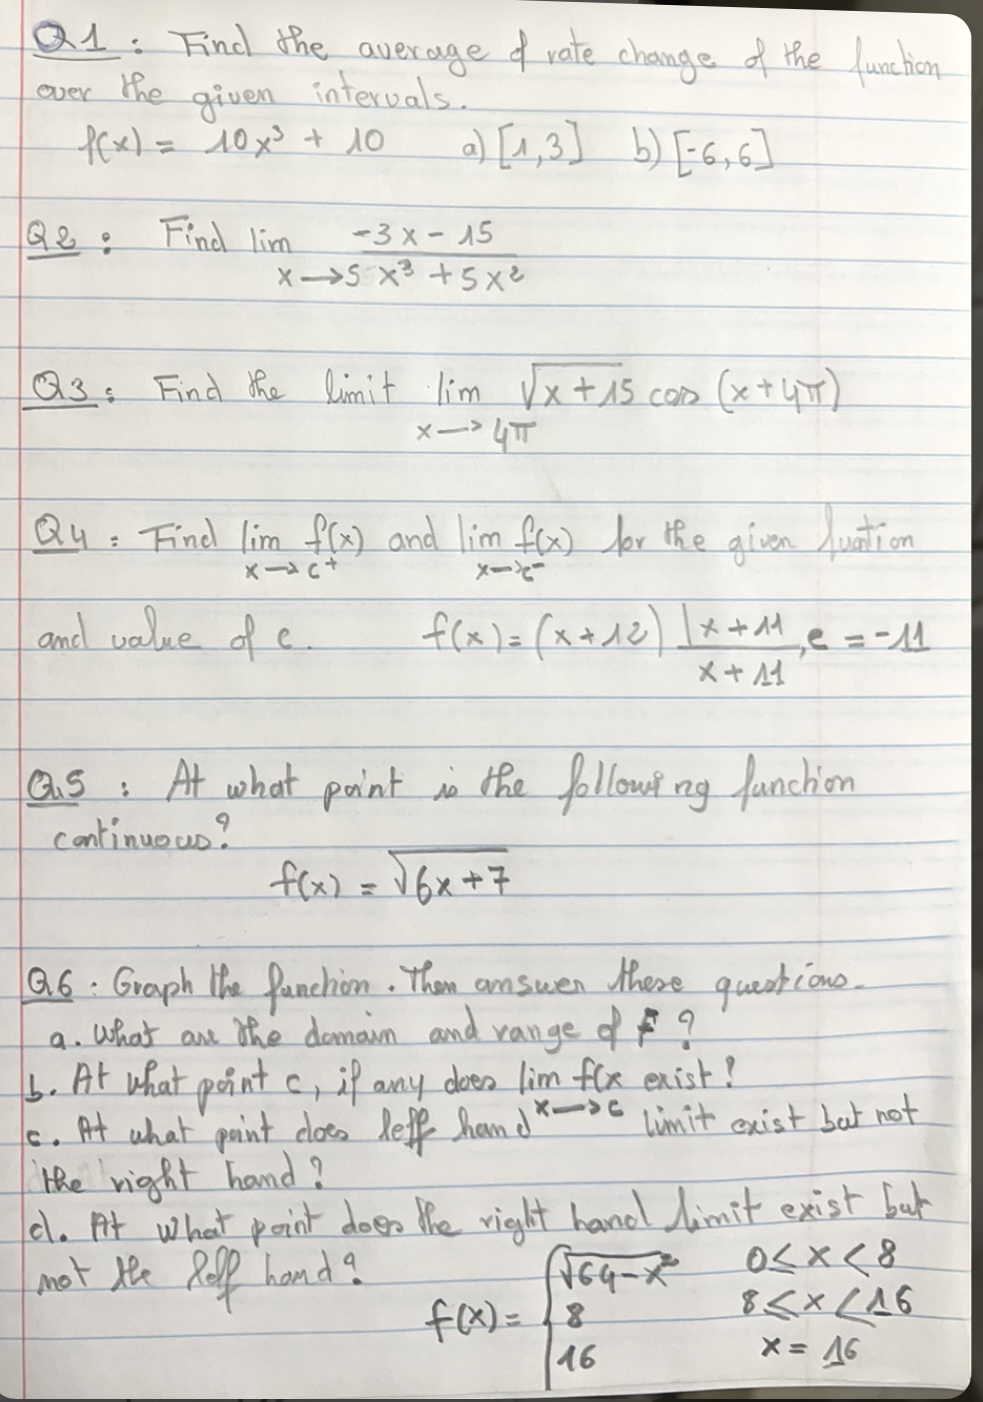 Q1: Find the average of rate change of the function
over the given intervals.
f(x) = 10x³ + 10 a) [1,3] b) [-6,6]
Q2: Find lim -3x - 15
x→5 x³ + 5x²
Q3: Find the limit lim √x+15 cos (x+4π)
x→4π
Q4: Find lim f(x) and lim f(x) for the given fuction
x→c⁺ x→c⁻
and value of c. f(x) = (x+12) |x+11 , c = -11
x+11
Q5: At what point is the following function
continuous?
f(x) = √6x+7
Q6: Graph the function. Then answer these questions.
a. What are the domain and range of F?
b. At what point c, if any does lim f(x exist?
x→c
c. At what point does leff hand limit exist but not
the right hand?
d. At what point does the right hand limit exist but
not the leff hand?
√64-x² 0≤x<8
f(x) = { 8 8≤x<16
16 x = 16